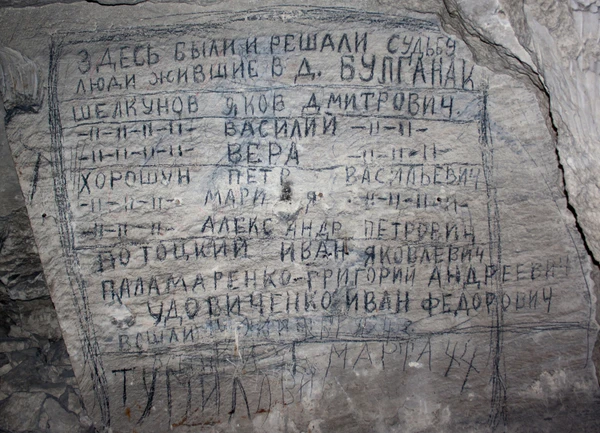 ЗДЕСЬ БЫЛИ И РЕШАЛИ СУДЬБУ
ЛЮДИ ЖИВШИЕ В Д. БУЛГАНАК
ШЕЛКУНОВ ЯКОВ ДМИТРОВИЧ
-II-II-II-II- ВАСИЛИЙ -II-II-
-II-II-II-II- ВЕРА -II-II-
ХОРОШУН ПЕТР ВАСИЛЬЕВИЧ
-II-II-II-II- МАРИЯ -II-II-II-
-II-II-II-II- АЛЕКСАНДР ПЕТРОВИЧ
ПОТОЦКИЙ ИВАН ЯКОВЛЕВИЧ
ПАЛАМАРЕНКО-ГРИГОРИЙ АНДРЕЕВИЧ
УДОВИЧЕНКО ИВАН ФЕДОРОВИЧ
ВОШЛИ
МАРТА